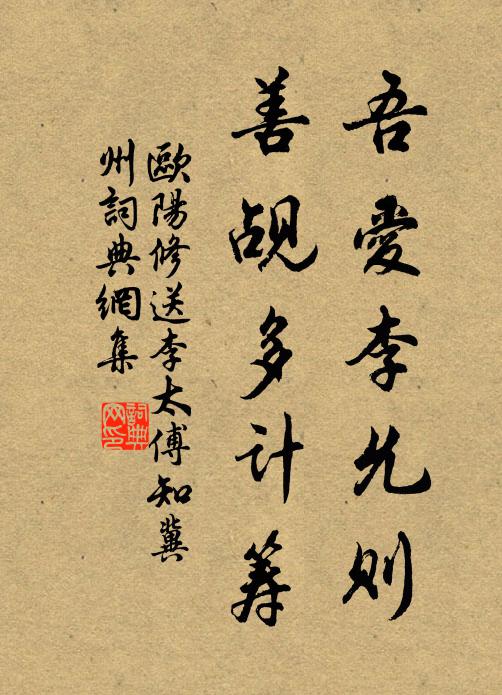 吾愛李允則
善覘多計籌
歐陽修送李太傅知冀
州詞典網集
詞典
网印